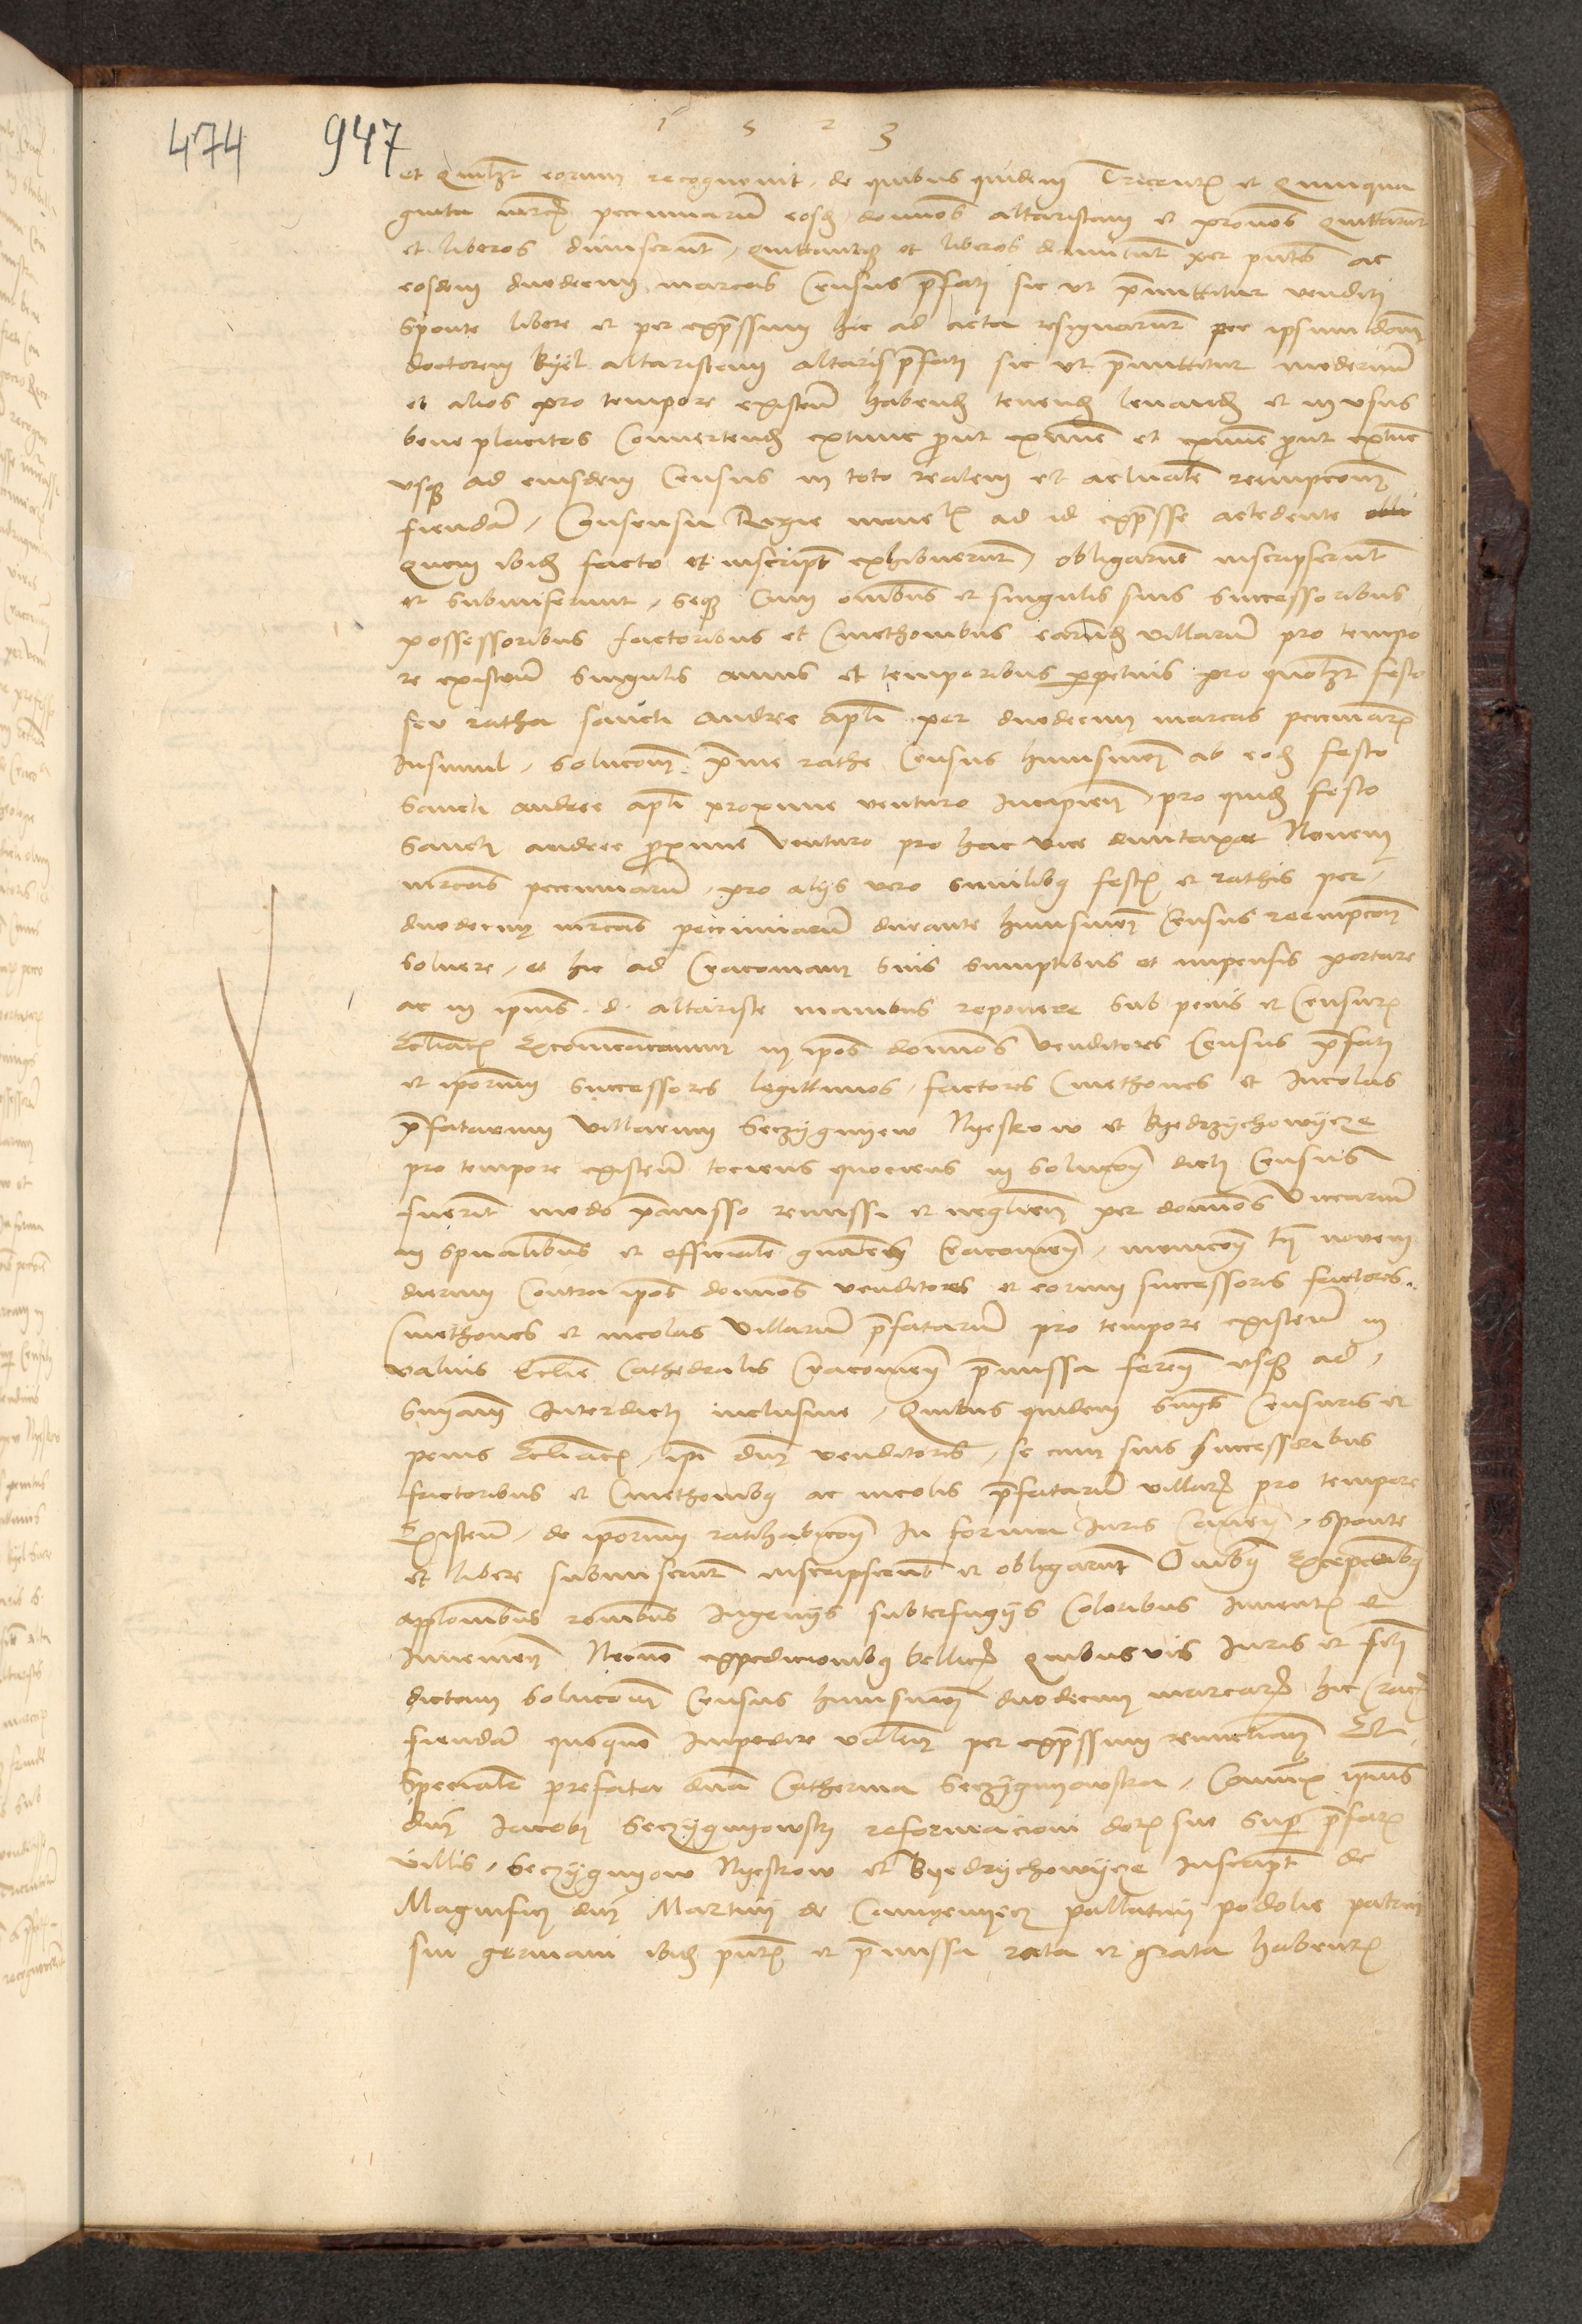 474 947 1 5 2 3
et quilibet eorum recognovit de quibus quidem Tricentis et quinqua
ginta marcis pecuniarum eosdem dominos altaristam et provisores quittarunt
et liberos dimiserunt quittantque et liberos dimittunt per presentes ac
eosdem duodecim marcas Census prefati sic ut premittitur venditi
sponte libere et per expressum hic ad acta resignarunt per ipsum dominum
doctorem Kyel altaristam altaris prefati sic ut premittitur modernum
et alios pro tempore existentes habendum tenendum levandum et in usus
bene placitos Convertendum extunc prout exnunc et exnunc prout extunc
usque ad eiusdem Census in toto realem et actualem reempcionem
fiendam Consensu Regie maiestatis ad id expresse accedente
quem ibidem facto et inscripto exhibuerunt obligarunt inscripserunt
et submiserunt seque cum omnibus et singulis suis successoribus
possessoribus factoribus et Cmethonibus earundem villarum pro tempo
re existentibus singulis annis et temporibus perpetuis pro quolibet festo
seu ratha sancti andree apostoli per duodecim marcas pecuniarum
insimul solucionem prime rathe Census huiusmodi ab eodem festo
sancti andree apostoli proxime venturo incipiendo pro quidem festo
sancti andree proxime venturo pro hac vice duntaxat Novem
marcas pecuniarum pro alijs vero similibus festis et rathis per
duodecim marcas pecuniarum durante huiusmodi Census reempcione
solvere et hic ad Cracoviam suis sumptibus et impensis portare
ac in ipsius d. altariste manibus reponere sub penis et Censuris
Ecclesiasticis Excommunicacionum in ipsos dominos venditores Census prefati
et ipsorum successores legittimos factores Cmethones et Incolas
prefatarum villarum Seczygnyew Nyeskow et Byedrzychowycze
pro tempore existentium tociens quociens in solucione dicti Census
fuerint modo premisso remissi et negligentes per dominos vicarium
in spiritualibus et officialem generalem Cracoviensem monicione tamen novem
dierum contra ipsos dominos venditores et eorum successores factores
Cmethones et incolas villarum prefatarum pro tempore existentium in
valvis Ecclesie Cathedralis Cracoviensis premissa ferendis usque ad
sententiam Interdicti inclusive Quibus quidem sententiis Censuris et
penis Ecclesiasticis ipsi domini venditores se cum suis successoribus
factoribus et Cmethonibus ac incolis prefatarum villarum pro tempore
Existentium de ipsorum ratihabicione In forma Iuris Camere sponte
et libere submiserunt inscripserunt et obligarunt Omnibus Excepcionibus
appellacionibus racionibus ingenijs subterfugijs Coloribus Inventis et
Inveniendis Necnon expedicionibus bellicis quibusvis Iuris et facti
dictam solucionem Census huiusmodi duodecim marcarum hic Cracovie
fiendam quoquo impedire valentibus per expressum renunciantes Et
specialiter prefata domina Catherina Seczygnyowska Consors ipsius
domini Iacobi Seczygnyowsky reformacioni dotis sue super prefatis
villis Seczygnyow Nyeskow et Byedrychowycze inscripte de
Magnifici domini Martini de Camyenyecz pallatini podolie patrui
sui germani ibidem presentis et premissa rata et grata habentis